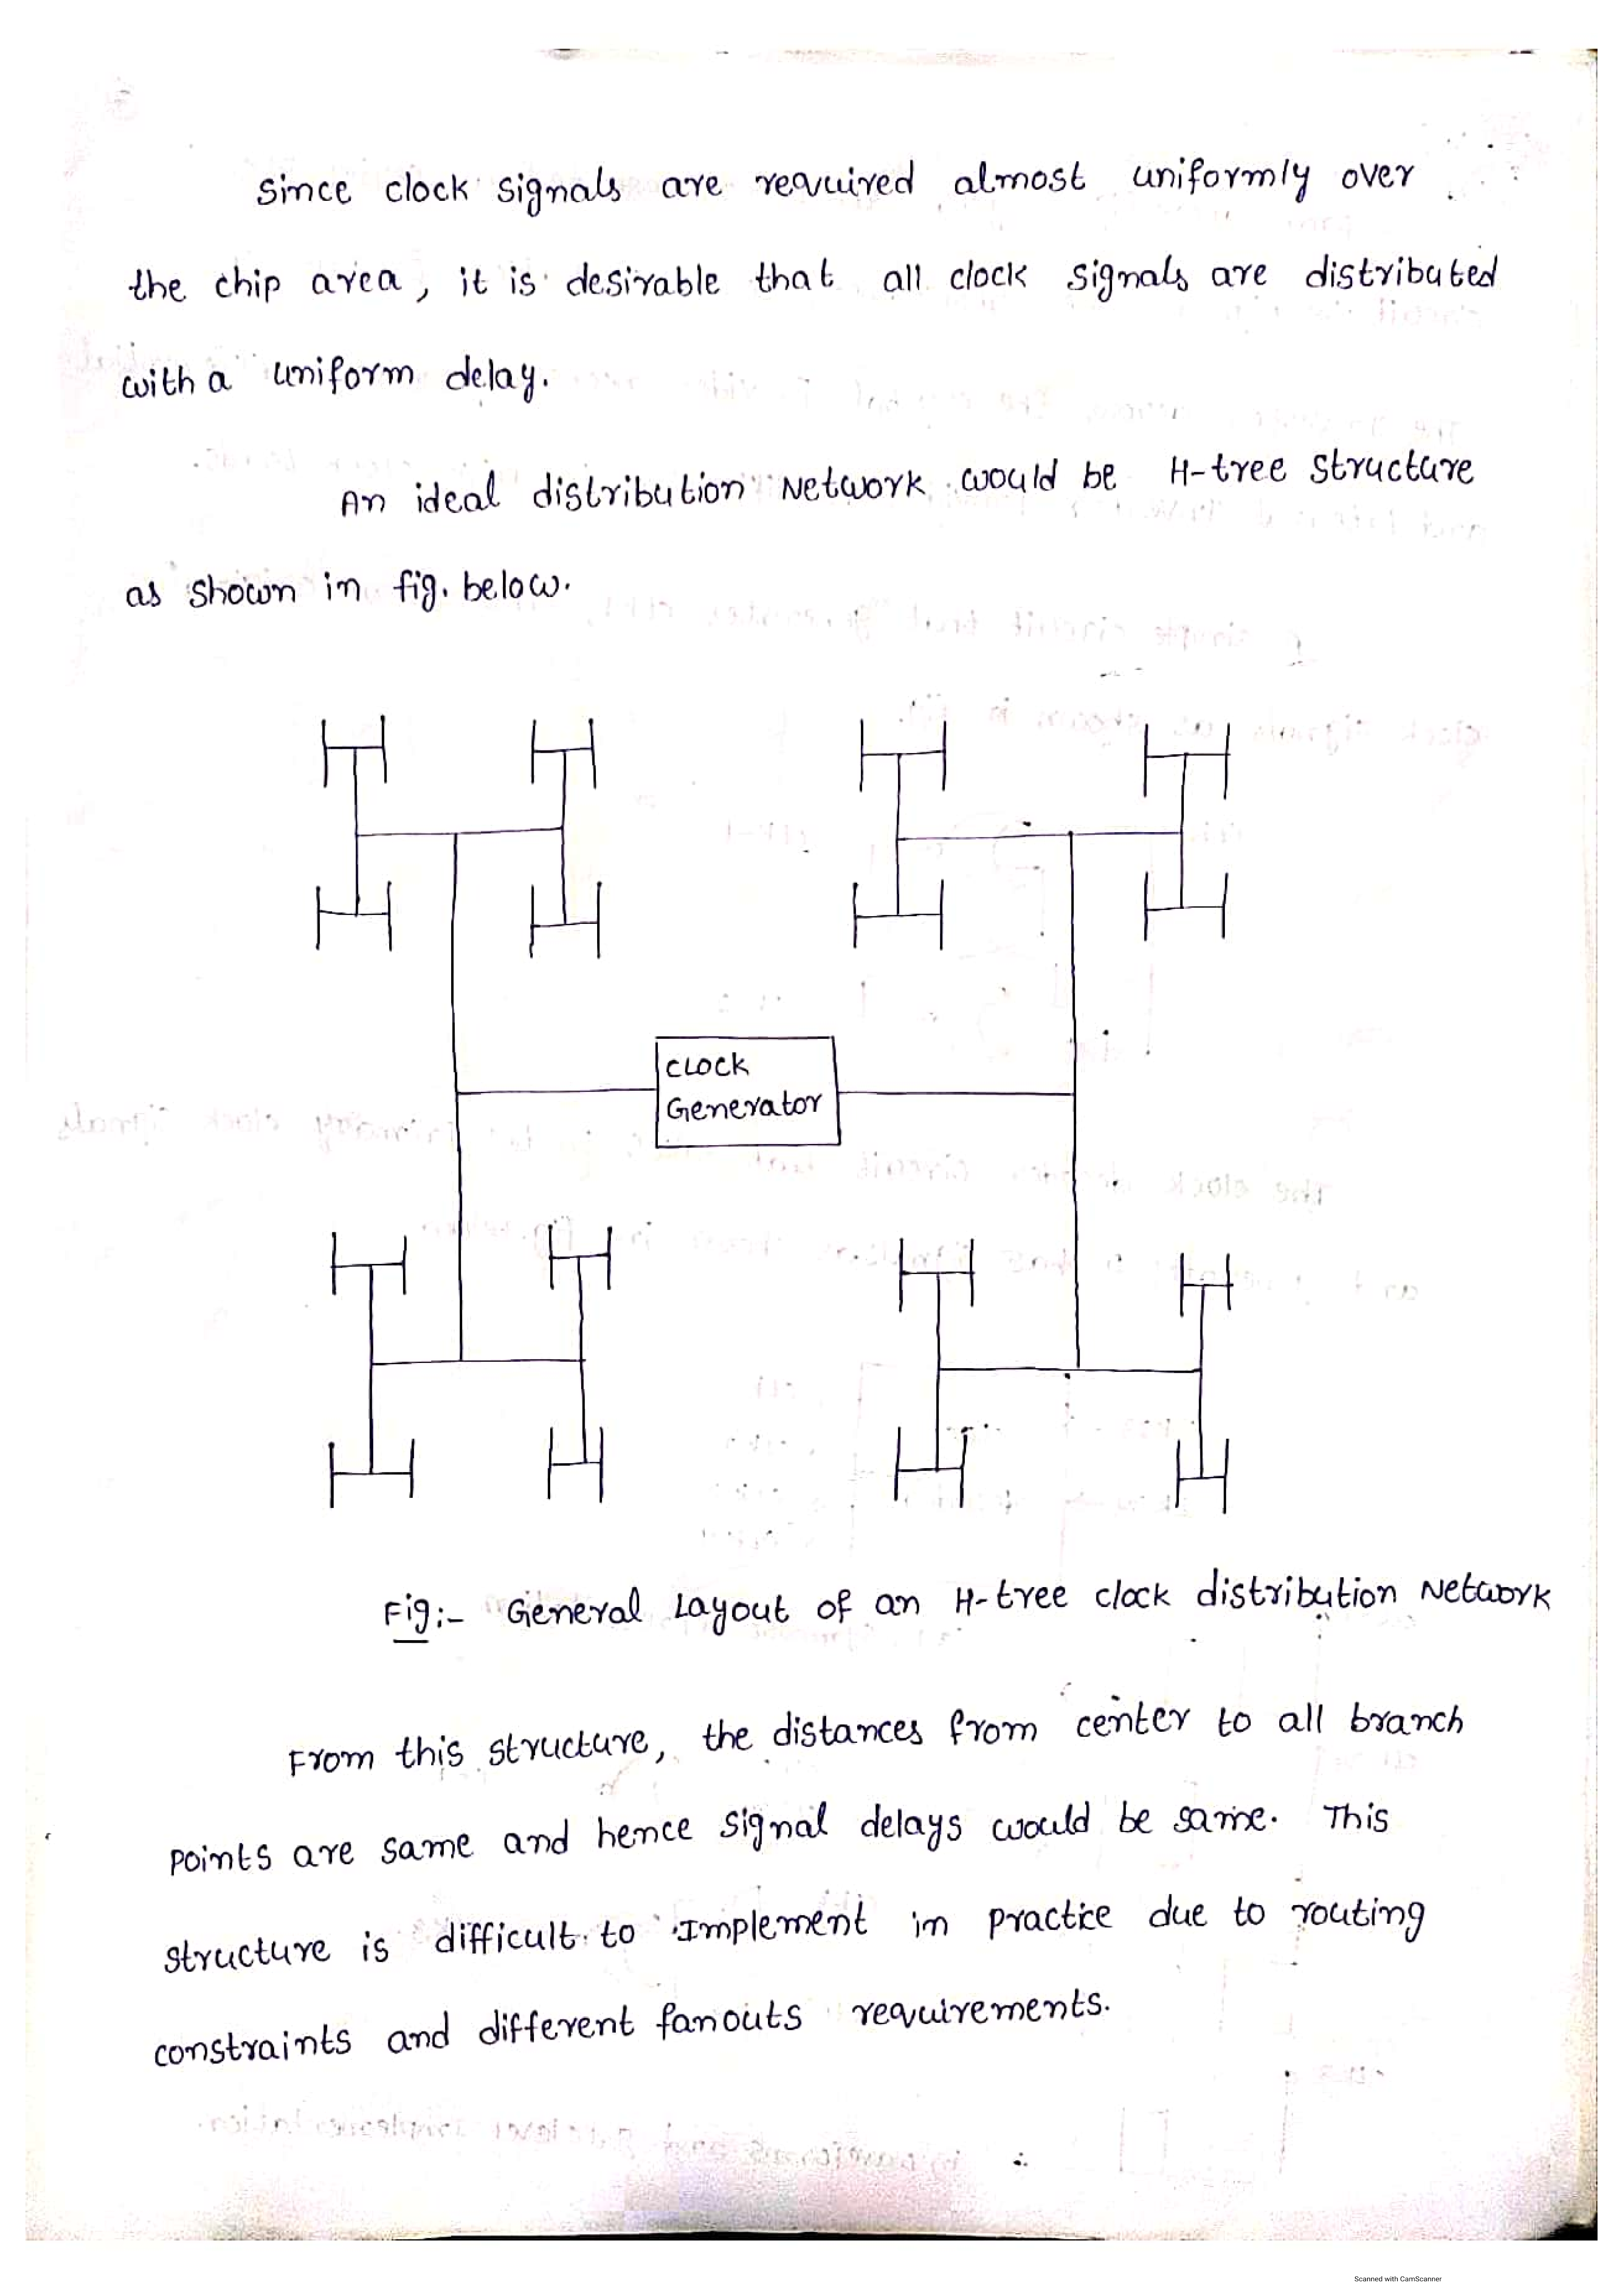 since clock signals are required almost uniformly over
the chip area, it is desirable that all clock signals are distributed
with a uniform delay.
An ideal distribution Network would be H-tree structure
as shown in fig. below.
CLOCK
Generator
Fig:- General Layout of an H-tree clock distribution Network
From this structure, the distances from center to all branch
points are same and hence signal delays would be same. This
structure is difficult to Implement in practice due to routing
constraints and different fanouts requirements.
Scanned with CamScanner